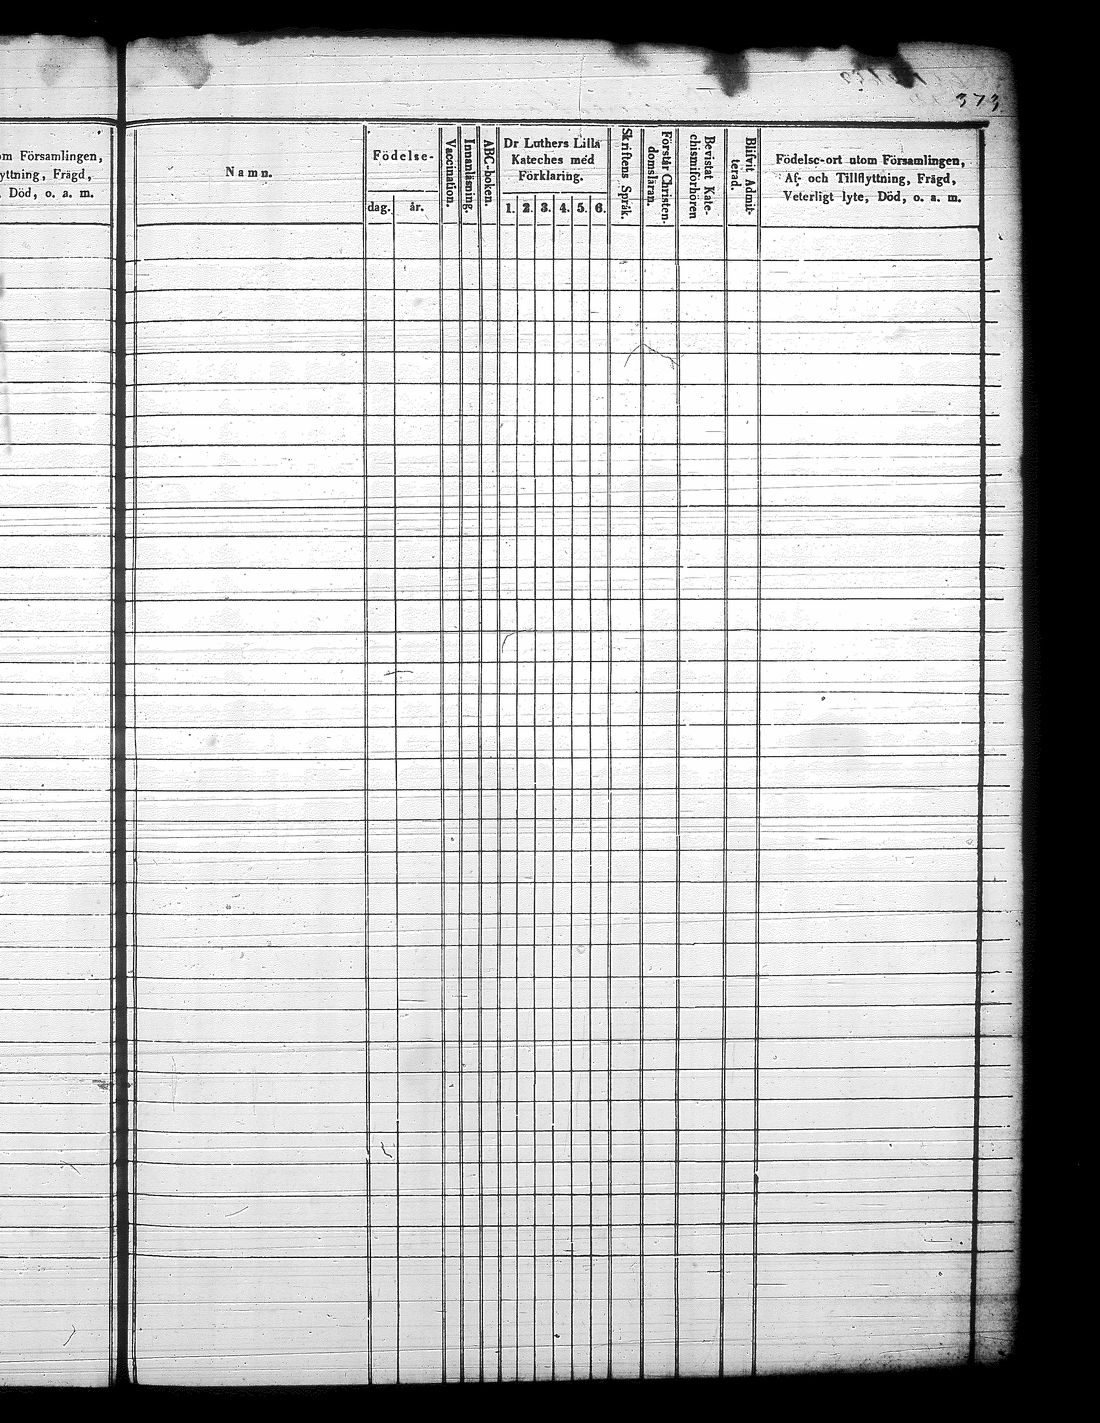 373
om Församlingen,
yttning, Frägd,
Död, o. a. m.
Namn.
Födelse-
dag.
år.
Vaccination.
Innanläsning.
ABC-boken.
Dr Luthers Lilla
Kateches med
Förklaring.
1. 2. 3. 4. 5. 6.
Skriftens Språk.
Förstår Christen-
domsläran.
Bevistat Kate-
chismiförhören
Blifvit Admit-
terad.
Födelse-ort utom Församlingen,
Af- och Tillflyttning, Frägd,
Veterligt lyte, Död, o. a. m.